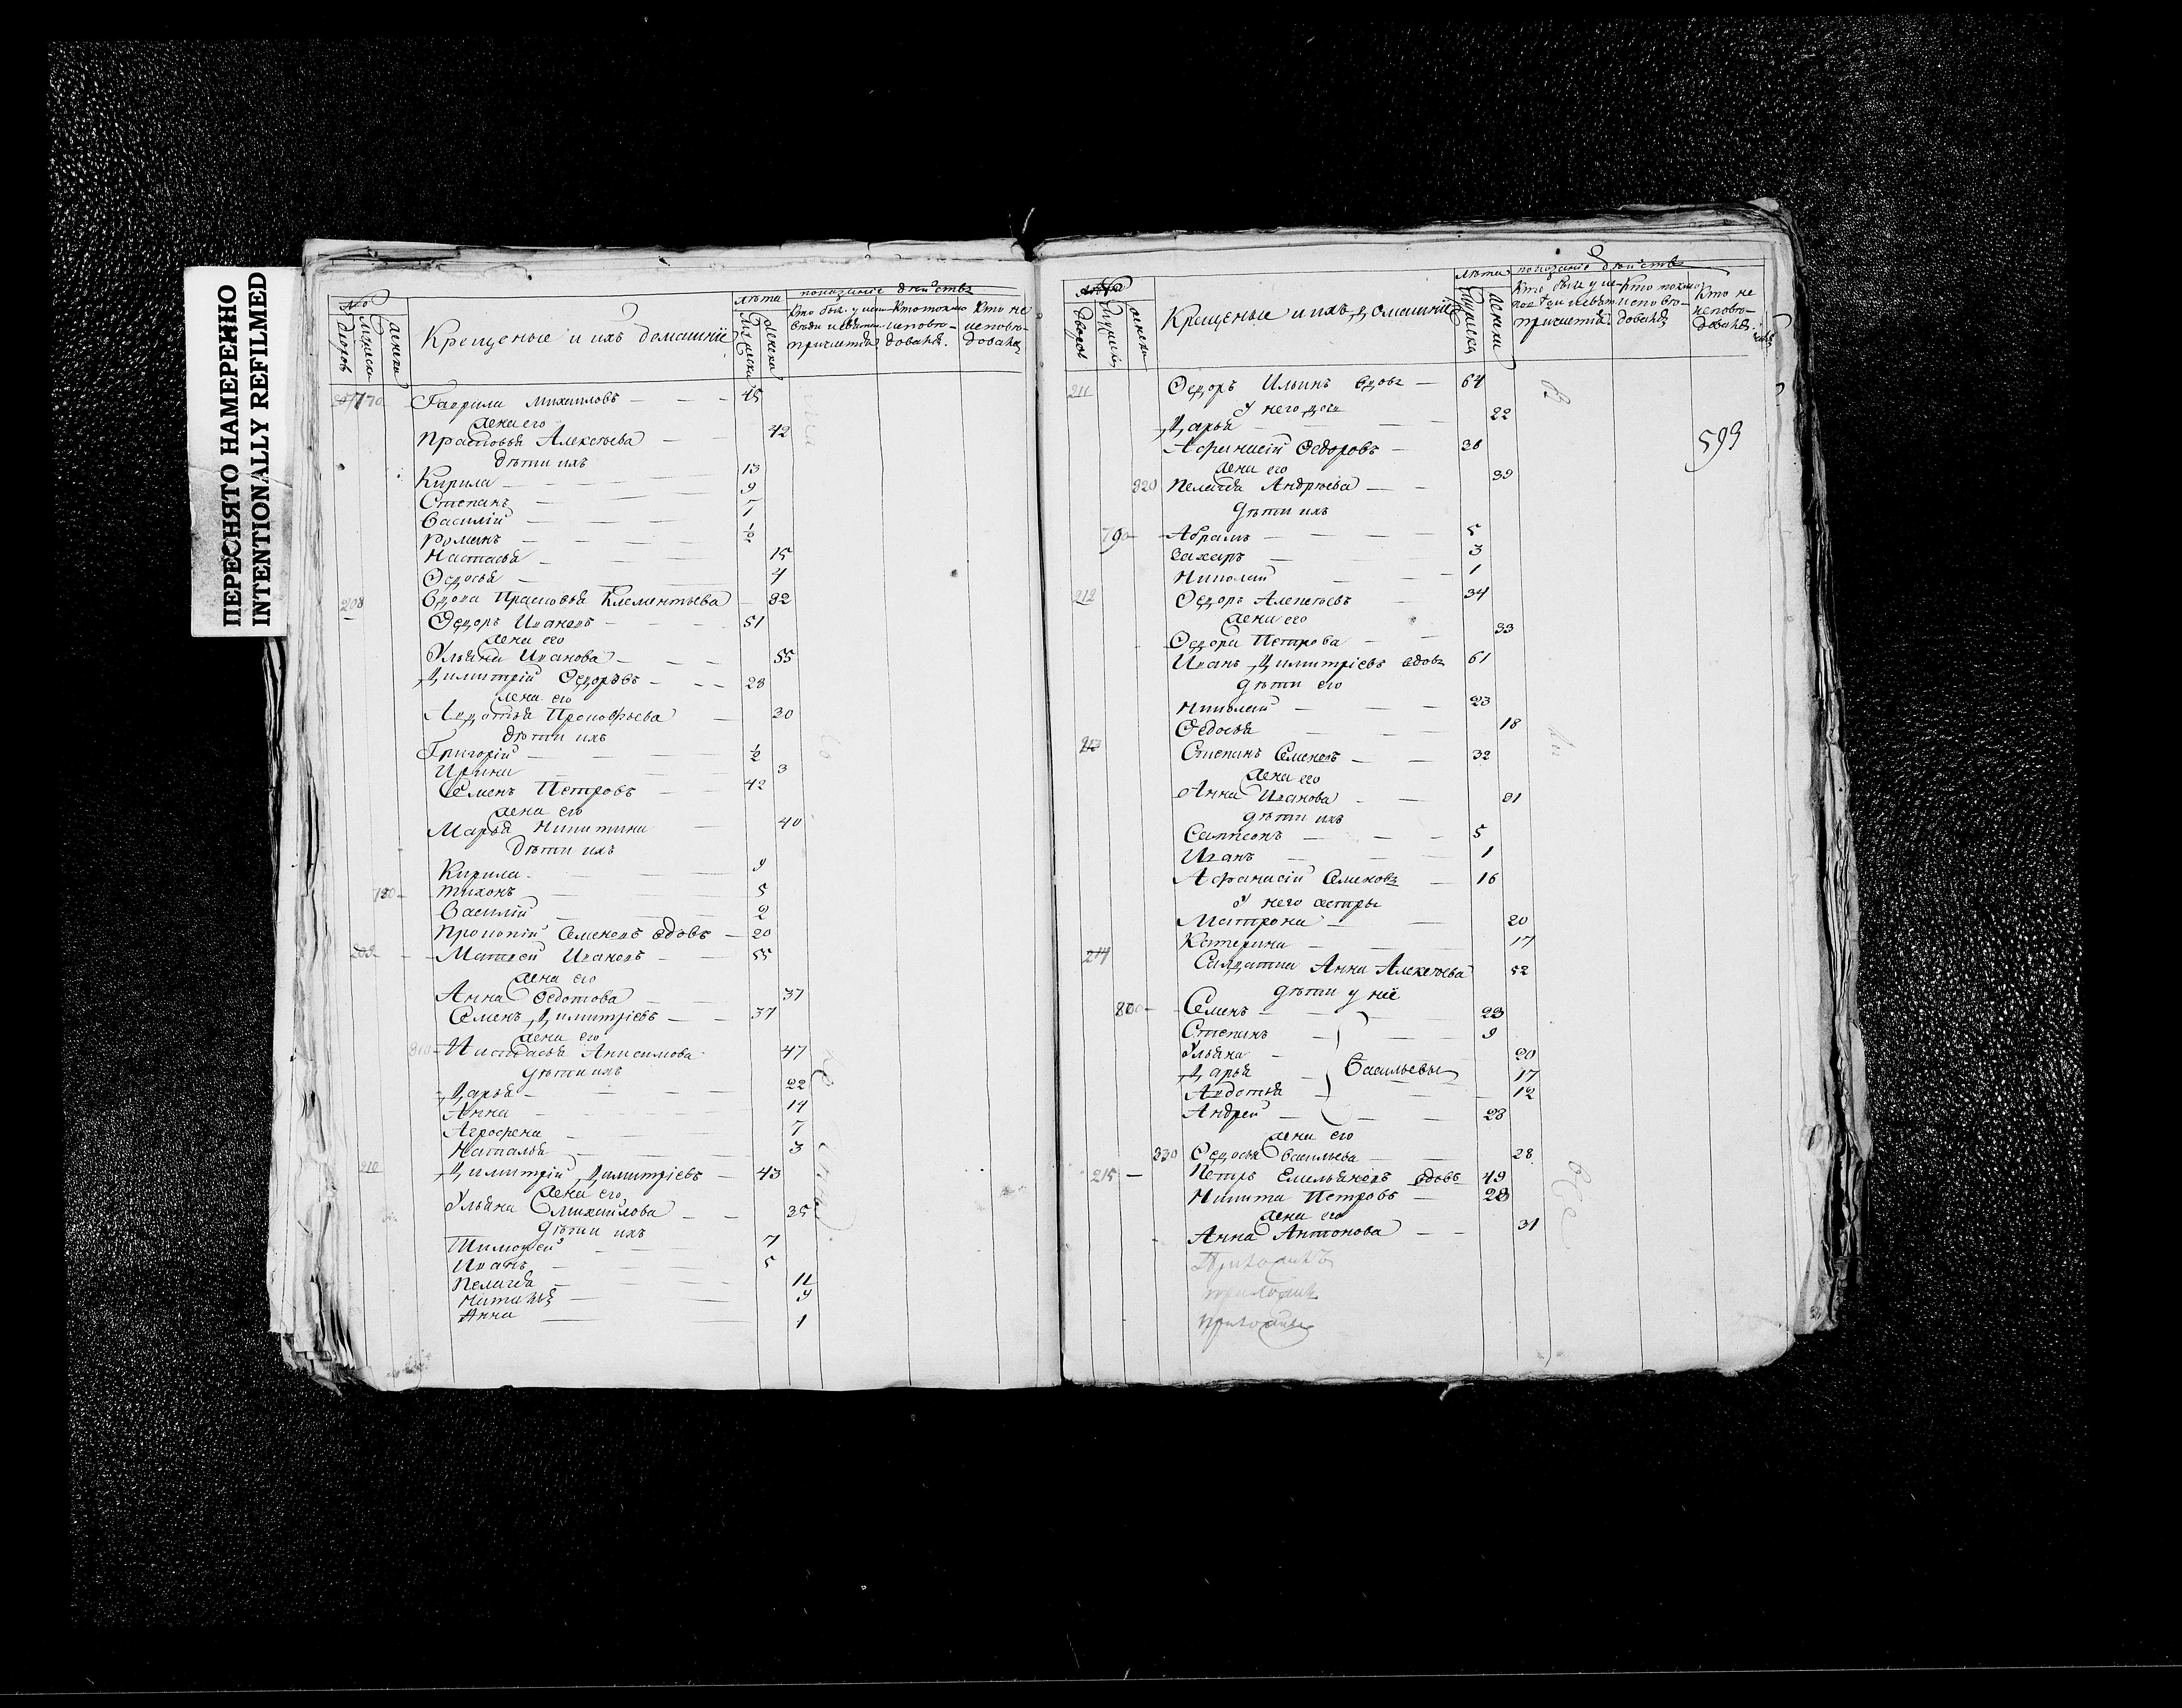 ПЕРЕСНЯТО НАМЕРЕННО
INTENTIONALLY REFILMED
№
лѣта
показание дѣйствъ
дворовъ
мужеска
женска
Крещеные и ихъ домашніе
мужеска
женска
Кто был у испо-
вѣди и святаго
причастія
Кто токмо
исповѣ-
довахъ.
Кто не
исповѣ-
довахъ
207 770 Гаврила Михайловъ 45
жена его
Прасковья Алексѣева 42
дѣти ихъ
Кирила 13
Степанъ 9
Василій
Романъ ½
Настасья 15
Ѳедосья 4
208 Вдова Прасковья Клементьева 82
Ѳедоръ Ивановъ 51
жена его
Ульяна Иванова 55
Димитрій Ѳедоровъ 28
жена его
Авдотья Прокофьева 30
дѣти ихъ
Григорій ½
Ирина 3
Семенъ Петровъ 42
жена его
Марья Никитина 40
дѣти ихъ
Кирила 9
780 Тихонъ 5
Василій 2
Прокопій Семеновъ вдовъ 20
209 Матвей Ивановъ 55
жена его
Анна Ѳедотова 37
Семенъ Димитріевъ 37
жена его
810 Настасья Анисимова 47
дѣти ихъ
Дарья 22
Анна 14
Агрофена 7
Наталья 3
210 Димитрій Димитріевъ 43
жена его
Ульяна Михайлова 35
дѣти ихъ
Тимофей 7
Иванъ 5
Пелагея 11
Наталья 9
Анна 1
лѣта
показаніе дѣйствъ
дворовъ
мужеска
женска
Крещеные и ихъ домашніе
мужеска
женска
Кто был у ис-
причастія
Кто токмо
исповѣ-
довахъ
Кто не
исповѣ-
довахъ.
211 Ѳедоръ Ильинъ вдовъ 64
у него дочь
Дарья 22
Афанасій Ѳедоровъ 36
593
жена его
820 Пелагея Андрѣева 39
дѣти ихъ
790 Абрамъ 5
Захаръ 3
Николай 1
212 Ѳедоръ Алексѣевъ 34
жена его
Ѳедора Петрова 33
Иванъ Димитріевъ вдовъ 61
дѣти его
Николай 23
Ѳедосья 18
213 Степанъ Семеновъ 32
жена его
Анна Иванова 31
дѣти ихъ
Сампсонъ 5
Иванъ 1
Афанасій Семеновъ 16
у него сестры
Матрона 20
Катерина 17
214 Салдатка Анна Алексѣева 52
дѣти у неё
800 Семенъ 23
Степанъ 9
Ульяна 20
Дарья Васильевы 17
Авдотья 12
Андрей 28
жена его
830 Ѳедосья Васильева 28
215 Петръ Емельяновъ вдовъ 49
Никита Петровъ 28
жена его
Анна Антонова 31